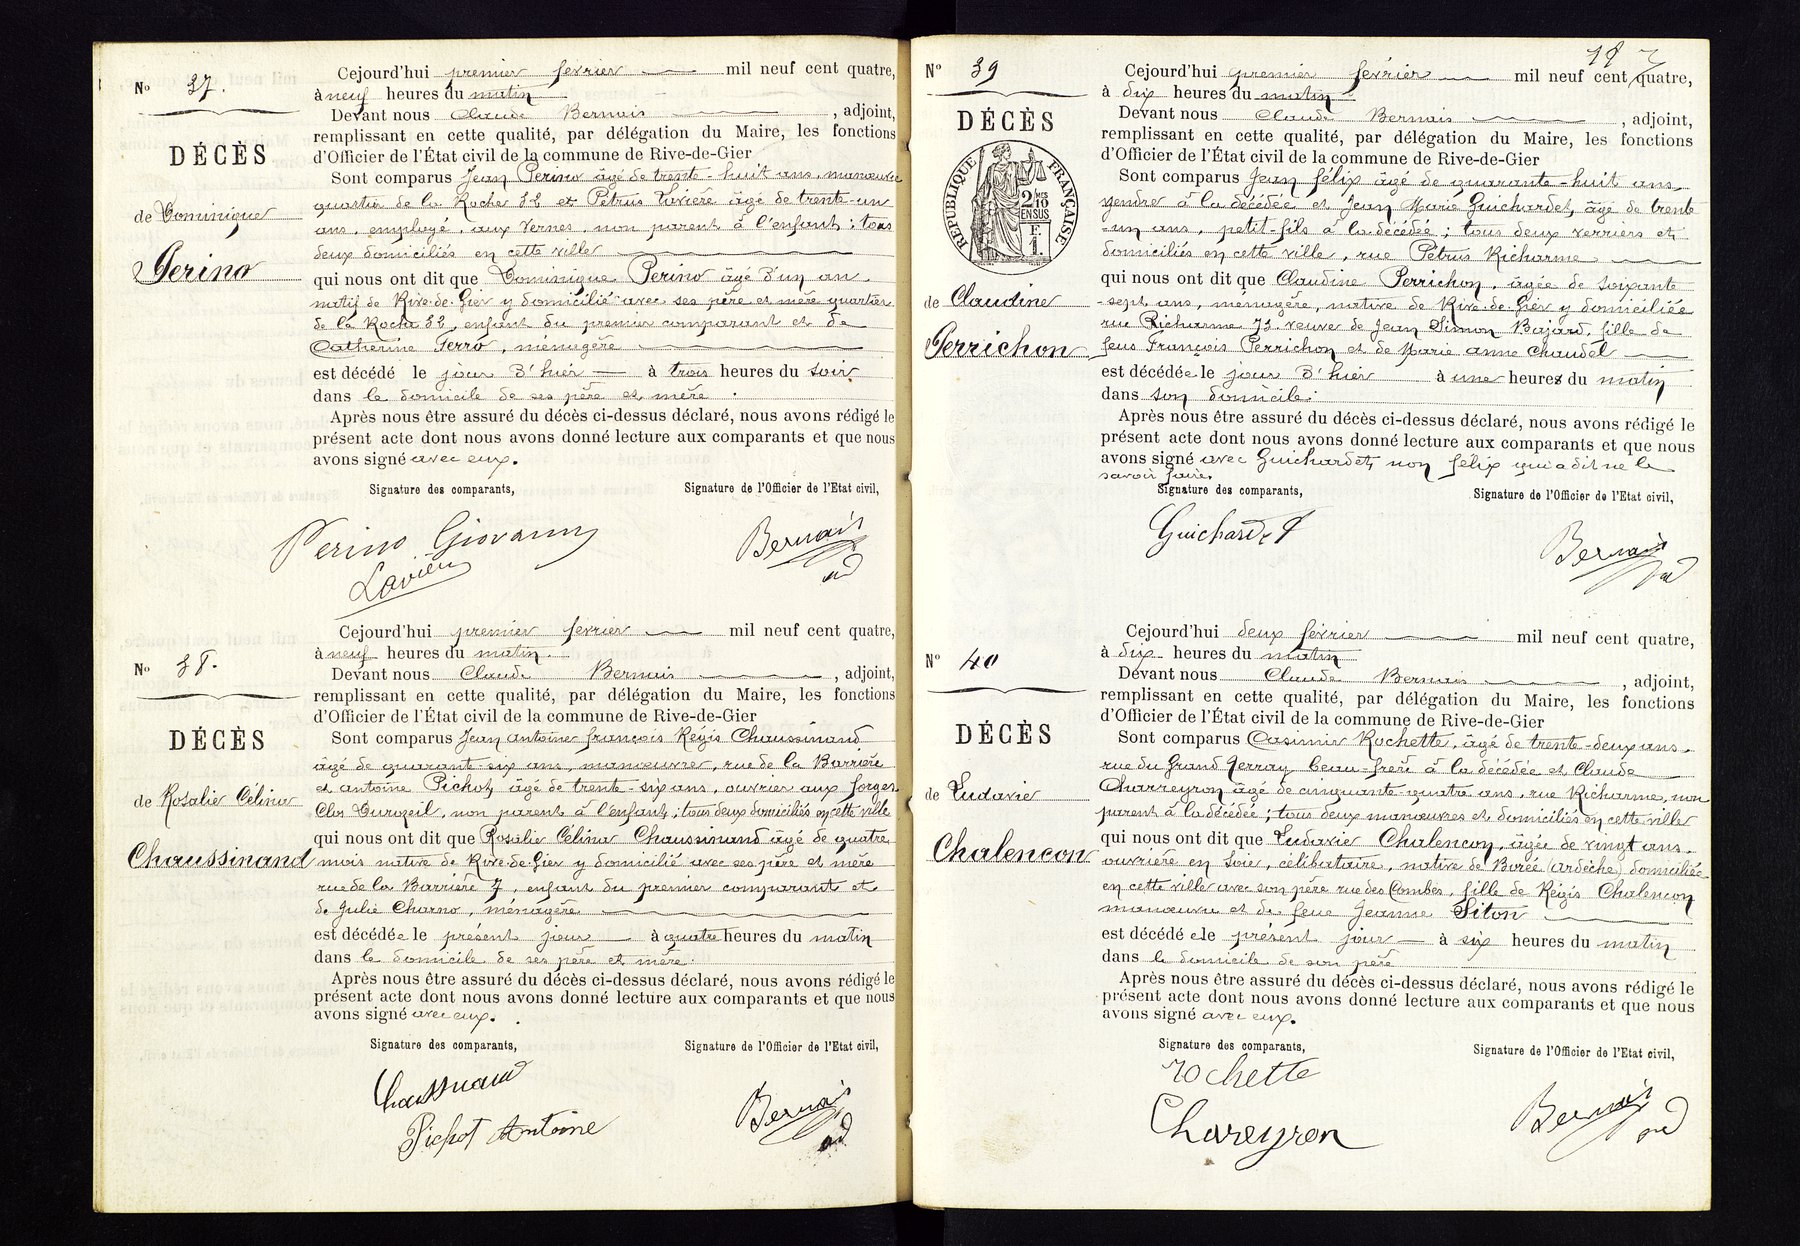 N° 37.
DÉCÈS
de Dominique
Perino
Cejourd'hui premier fevrier mil neuf cent quatre,
à neuf heures du matin
Devant nous Claude Bernais, adjoint,
remplissant en cette qualité, par délégation du Maire, les fonctions
d'Officier de l'État civil de la commune de Rive-de-Gier
Sont comparus Jean Perino âgé de trente-huit ans, manœuvre
quartier de la Roche 32 et Petrus Lavière âgé de trente-un
ans, employé, aux Vernes, non parent à l'enfant; tous
deux domiciliés en cette ville
qui nous ont dit que Dominique Perino âgé d'un an
natif de Rive-de-Gier y domicilié avec ses père et mère quartier
de la Roche 32, enfant du premier comparant et de
Catherine Ferro, ménagère
est décédé le jour d'hier à trois heures du soir
dans le domicile de ses père et mère.
Après nous être assuré du décès ci-dessus déclaré, nous avons rédigé le
présent acte dont nous avons donné lecture aux comparants et que nous
avons signé avec eux.
Signature des comparants,
Signature de l'Officier de l'Etat civil,
Perino Giovanni
Lavière
Bernais
ad
N° 38.
DÉCÈS
de Rosalie Célina
Chaussinand
Cejourd'hui premier fevrier mil neuf cent quatre,
à neuf heures du matin.
Devant nous Claude Bernais, adjoint,
remplissant en cette qualité, par délégation du Maire, les fonctions
d'Officier de l'État civil de la commune de Rive-de-Gier
Sont comparus Jean Antoine François Régis Chaussinand
âgé de quarante-six ans, manœuvre, rue de la Barrière
et Antoine Pichot, âgé de trente-six ans, ouvrier aux forges
Clos Durozeil, non parent à l'enfant; tous deux domiciliés en cette ville
qui nous ont dit que Rosalie Célina Chaussinand âgé de quatre
mois native de Rive-de-Gier y domicilié avec ses père et mère
rue de la Barrière 7, enfant du premier comparant et
de Julie Charno, ménagère
est décédée le présent jour à quatre heures du matin
dans le domicile de ses père et mère.
Après nous être assuré du décès ci-dessus déclaré, nous avons rédigé le
présent acte dont nous avons donné lecture aux comparants et que nous
avons signé avec eux.
Signature des comparants,
Signature de l'Officier de l'Etat civil,
Chaussinand
Pichot Antoine
Bernais
ad
N° 39
DÉCÈS
RÉPUBLIQUE FRANÇAISE
2/10 EN SUS
F. 1.
de Claudine
Perrichon
Cejourd'hui premier fevrier mil neuf cent quatre,
à dix heures du matin
Devant nous Claude Bernais, adjoint,
remplissant en cette qualité, par délégation du Maire, les fonctions
d'Officier de l'État civil de la commune de Rive-de-Gier
Sont comparus Jean Félix âgé de quarante-huit ans,
gendre à la décédée et Jean Marie Guichardet, âgé de trente
-un ans, petit-fils à la décédée; tous deux verriers et
domiciliés en cette ville, rue Petrus Richarme
qui nous ont dit que Claudine Perrichon, âgée de soixante
-sept ans, ménagère, native de Rive-de-Gier y domiciliée
rue Richarme 73 veuve de Jean Simon Bajard, fille de
feus François Perrichon et de Marie Anne Chaudel
est décédée le jour d'hier à une heures du matin
dans son domicile.
Après nous être assuré du décès ci-dessus déclaré, nous avons rédigé le
présent acte dont nous avons donné lecture aux comparants et que nous
avons signé avec Guichardet, non Félix qui a dit ne le
savoir faire.
Signature des comparants,
Signature de l'Officier de l'Etat civil,
Guichardet
Bernais
ad
N° 40
DÉCÈS
de Ludavie
Chalencon
Cejourd'hui deux février mil neuf cent quatre,
à dix heures du matin
Devant nous Claude Bernais, adjoint,
remplissant en cette qualité, par délégation du Maire, les fonctions
d'Officier de l'État civil de la commune de Rive-de-Gier
Sont comparus Casimir Rochette, âgé de trente-deux ans,
rue du Grand Gerray beau-frère à la décédée et Claude
Charreyron âgé de cinquante-quatre ans, rue Richarme, non
parent à la décédée; tous deux manœuvres et domiciliés en cette ville
qui nous ont dit que Ludavie Chalencon, âgée de vingt ans,
ouvrière en soie, célibataire, native de Borée (Ardèche) domiciliée
en cette ville avec son père rue des Combes, fille de Régis Chalencon
manœuvre et de feue Jeanne Siton
est décédée le présent jour à six heures du matin
dans le domicile de son père
Après nous être assuré du décès ci-dessus déclaré, nous avons rédigé le
présent acte dont nous avons donné lecture aux comparants et que nous
avons signé avec eux.
Signature des comparants,
Signature de l'Officier de l'Etat civil,
Rochette
Chareyron
Bernais
ad